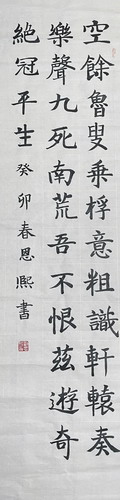 空餘魯叟乘桴意粗識軒轅奏
樂聲九死南荒吾不恨茲遊奇
絕冠平生癸卯春恩熙書